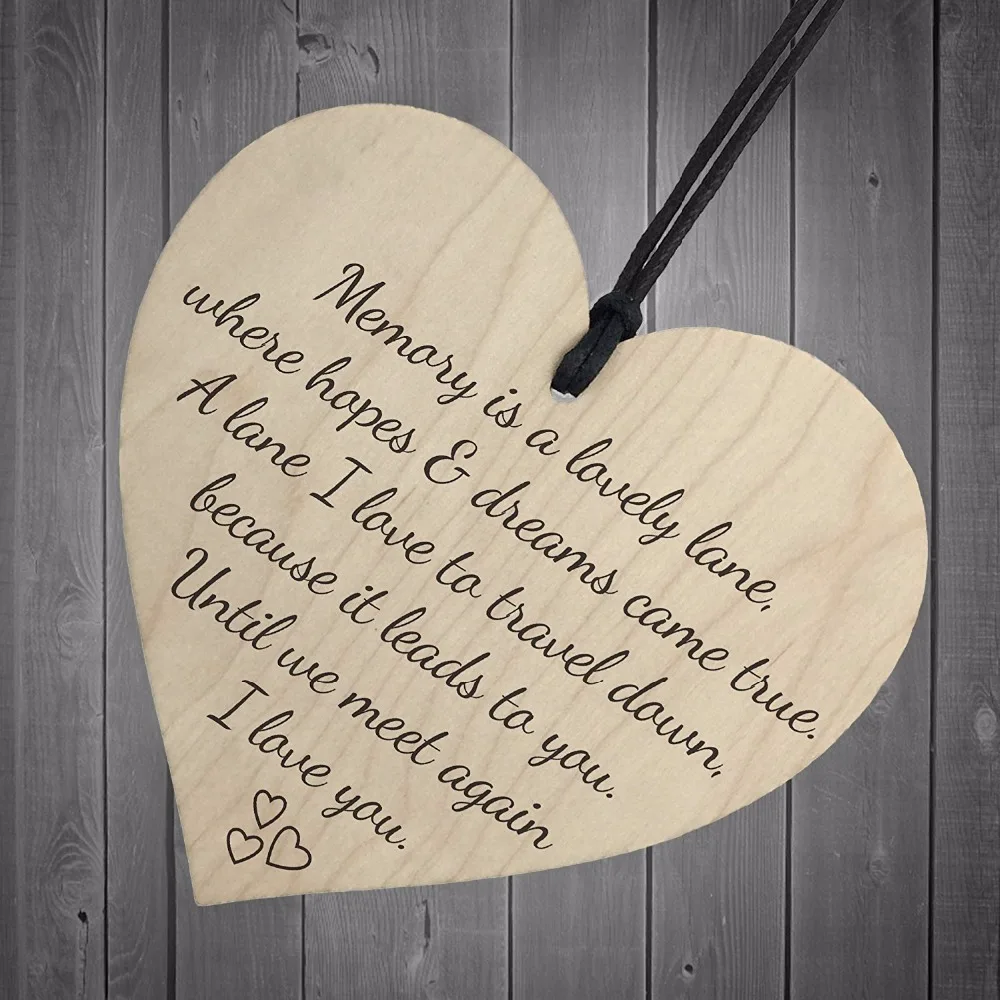 Memory is a lovely lane,
where hopes & dreams came true.
A lane I love to travel down,
because it leads to you.
Until we meet again
I love you.